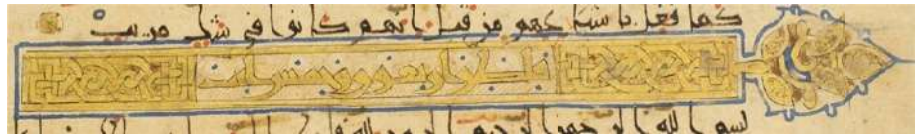 كما فعل باشياعهم من قبل انهم كانوا في شك مريب
فاطر اربعون وخمس ايات
بسم الله الرحمن الرحيم الحمد لله